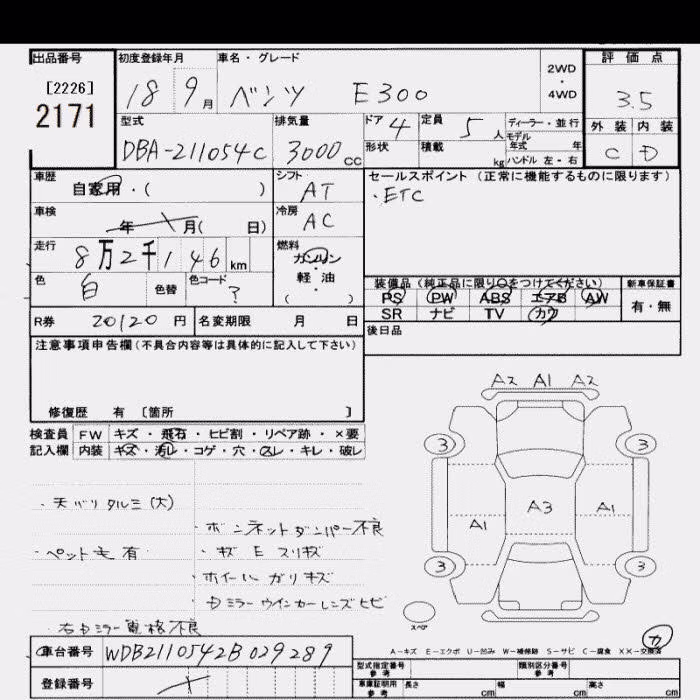 出品番号 初度登録年月 車名・グレード 評価点
[2226] 2WD
2171 18 9月 ベンツ E300 ・ 3.5
4WD
外装 内装
C D
型式 排気量 ドア 4 定員 5人 ディーラー・並行
モデル
年式 年
DBA-211054C 3000cc 形状 積載 kg ハンドル 左・右
車歴 シフト セールスポイント (正常に機能するものに限ります)
自家用・( ) AT ・ETC
車検 冷房
年 月( 日) AC
走行 燃料
8万2千146km ガソリン
・
色 白 色替 色コード ? 軽油
( )
装備品 (純正品に限り○をつけてください) 新車保証書
PS PW ABS エアB AW 有・無
SR ナビ TV カワ
R券 20120円 名変期限 月 日 後日品
注意事項申告欄(不具合内容等は具体的に記入して下さい)
修復歴 有 [箇所 ]
検査員 FW キズ・飛石・ヒビ割・リペア跡・×要
記入欄 内装 キズ・汚レ・コゲ・穴・スレ・キレ・破レ
A2 A1 A2
3 3
・天バリタルミ(大)
A3
A1 A1
・ボンネットダンパー不良
・ペット毛有 ・キズEスリキズ
3 3
・ホイールガリキズ
・Dミラーウインカーレンズヒビ
スペア
・右Dミラー電格不良
カ
A−キズ E−エクボ U−凹み W−補修跡 S−サビ C−腐食 XX−交換済
車台番号 WDB2110542B029289
型式指定番号 参考 類別区分番号 参考
登録番号 車庫証明用 参考 長さ cm 幅 cm 高さ cm